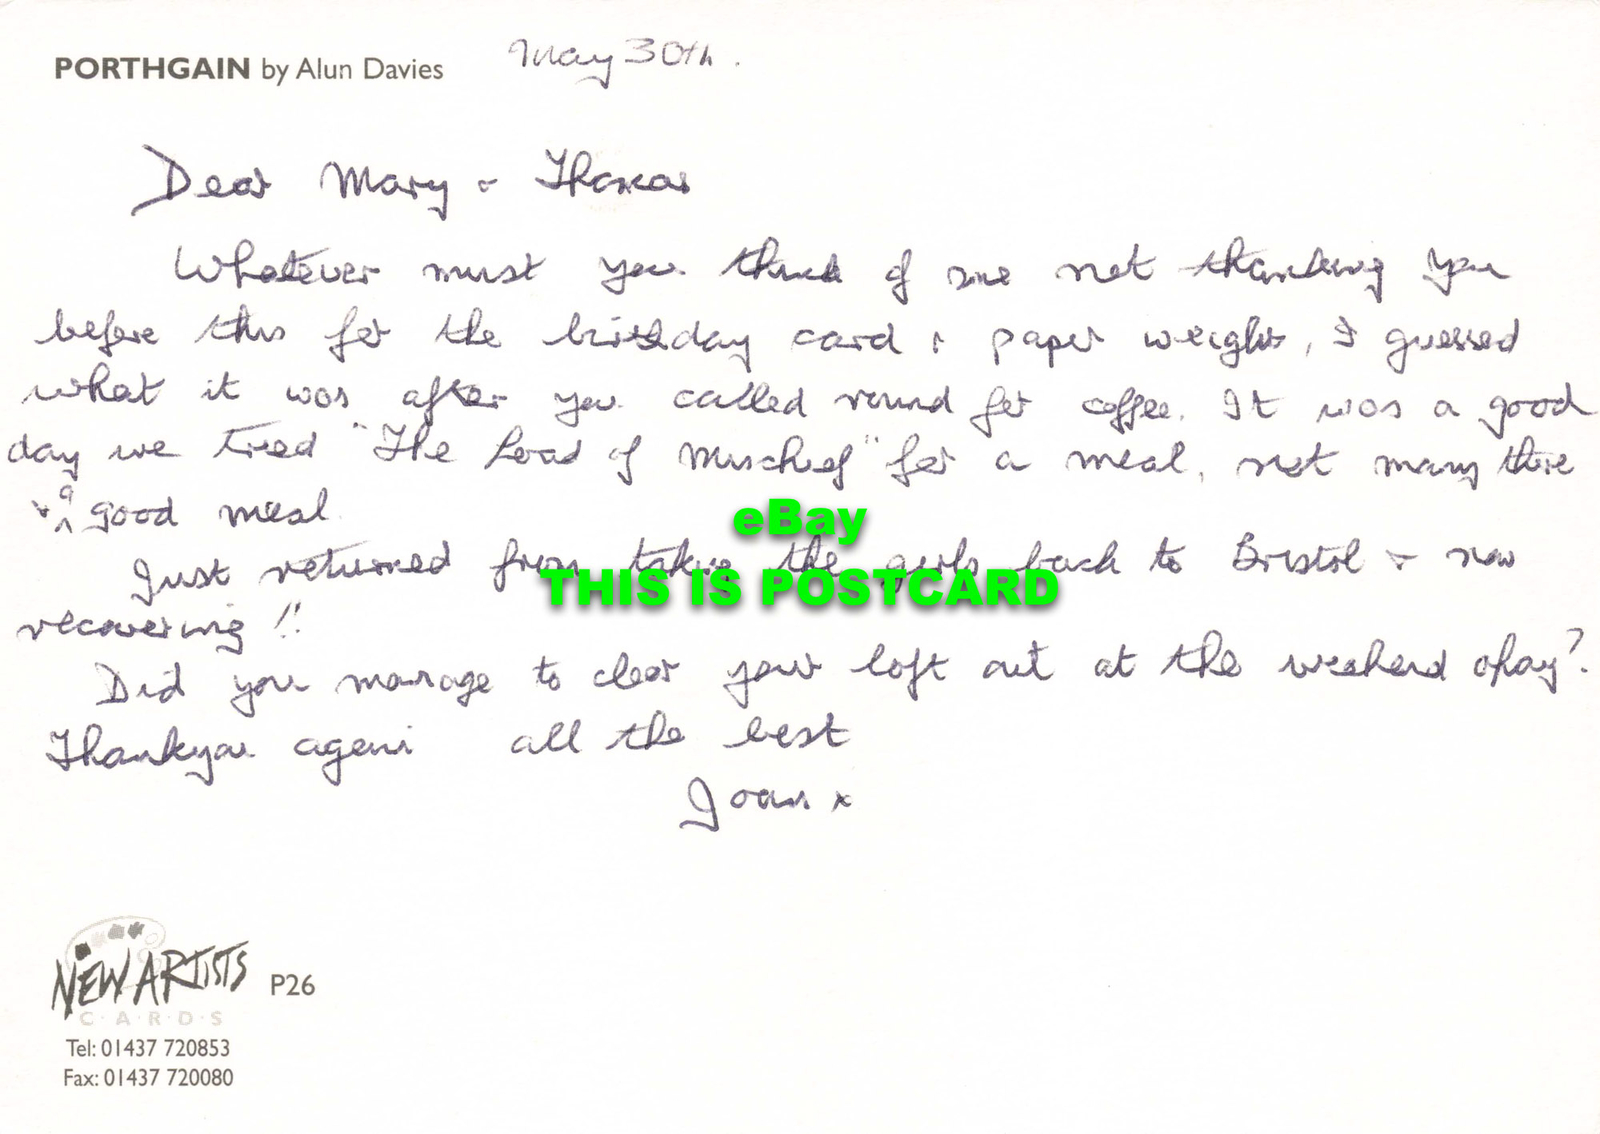 PORTHGAIN by Alun Davies
May 30th.
Dear Mary & Thomas
Whatever must you think of me not thanking you
before this for the birthday card & paper weight, I guessed
what it was after you called round for coffee. It was a good
day we tried "The Load of Mischief" for a meal, not many there
& a good meal.
Just returned from taking the girls back to Bristol & now
recovering !!
Did you manage to clear your loft out at the weekend okay?
Thankyou again all the best
Joan x
eBay
THIS IS POSTCARD
NEW ARTISTS
C·A·R·D·S
P26
Tel: 01437 720853
Fax: 01437 720080